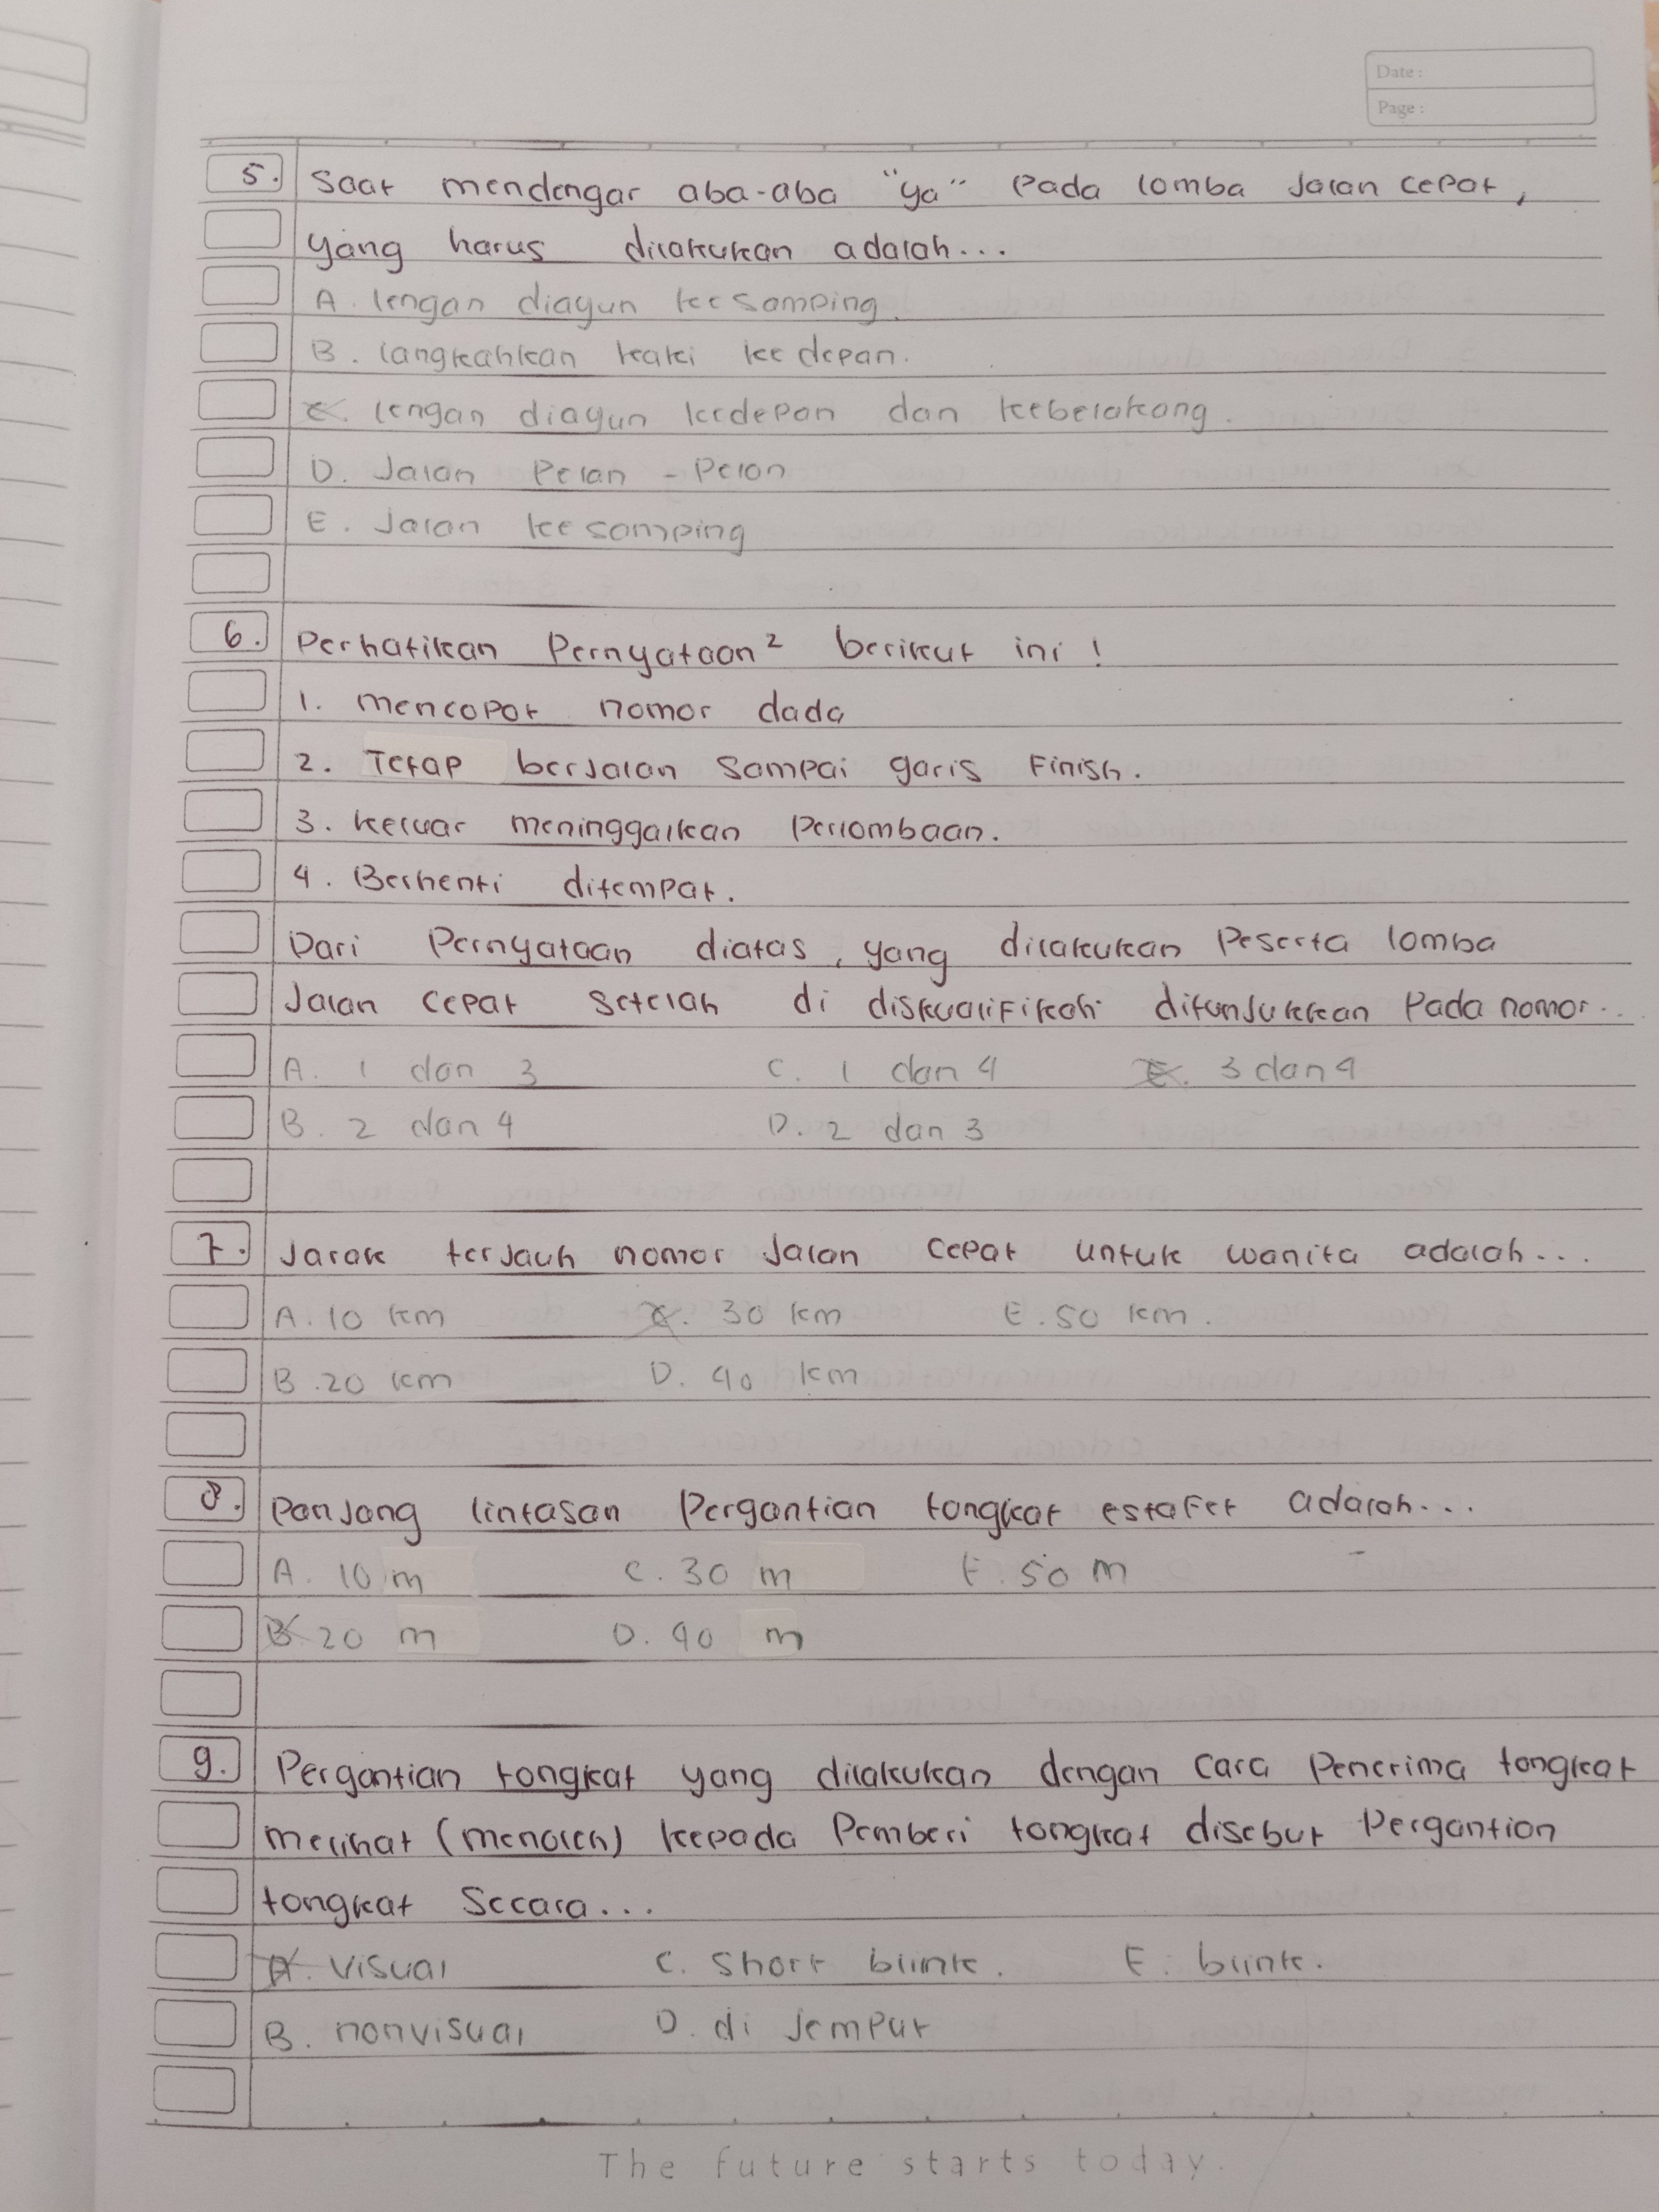 Date :
Page :
5. Saat mendengar aba-aba "ya" pada lomba Jalan cepat,
yang harus dilakukan adalah...
A. lengan diayun ke samping.
B. langkahkan kaki ke depan.
C. lengan diayun kedepan dan kebelakang.
D. Jalan Pelan - Pelan
E. Jalan ke samping
6. Perhatikan Pernyataan² berikut ini !
1. mencopot nomor dada
2. Tetap berjalan sampai garis Finish.
3. keluar meninggalkan Perlombaan.
4. Berhenti ditempat.
Dari Pernyataan diatas, yang dilakukan Peserta lomba
Jalan cepat setelah di diskualifikasi ditunjukkan Pada nomor...
A. 1 dan 3 C. 1 dan 4 E. 3 dan 4
B. 2 dan 4 D. 2 dan 3
7. Jarak terjauh nomor Jalan cepat untuk wanita adalah...
A. 10 km C. 30 km E. 50 km.
B. 20 km D. 40 km
8. Panjang lintasan Pergantian tongkat estafet adalah...
A. 10 m C. 30 m E. 50 m
B. 20 m D. 40 m
9. Pergantian tongkat yang dilakukan dengan cara Penerima tongkat
melihat (menoleh) kepada Pemberi tongkat disebut Pergantian
tongkat Secara...
A. visual C. Short blink. E. blink.
B. nonvisual D. di Jemput
The future starts today.